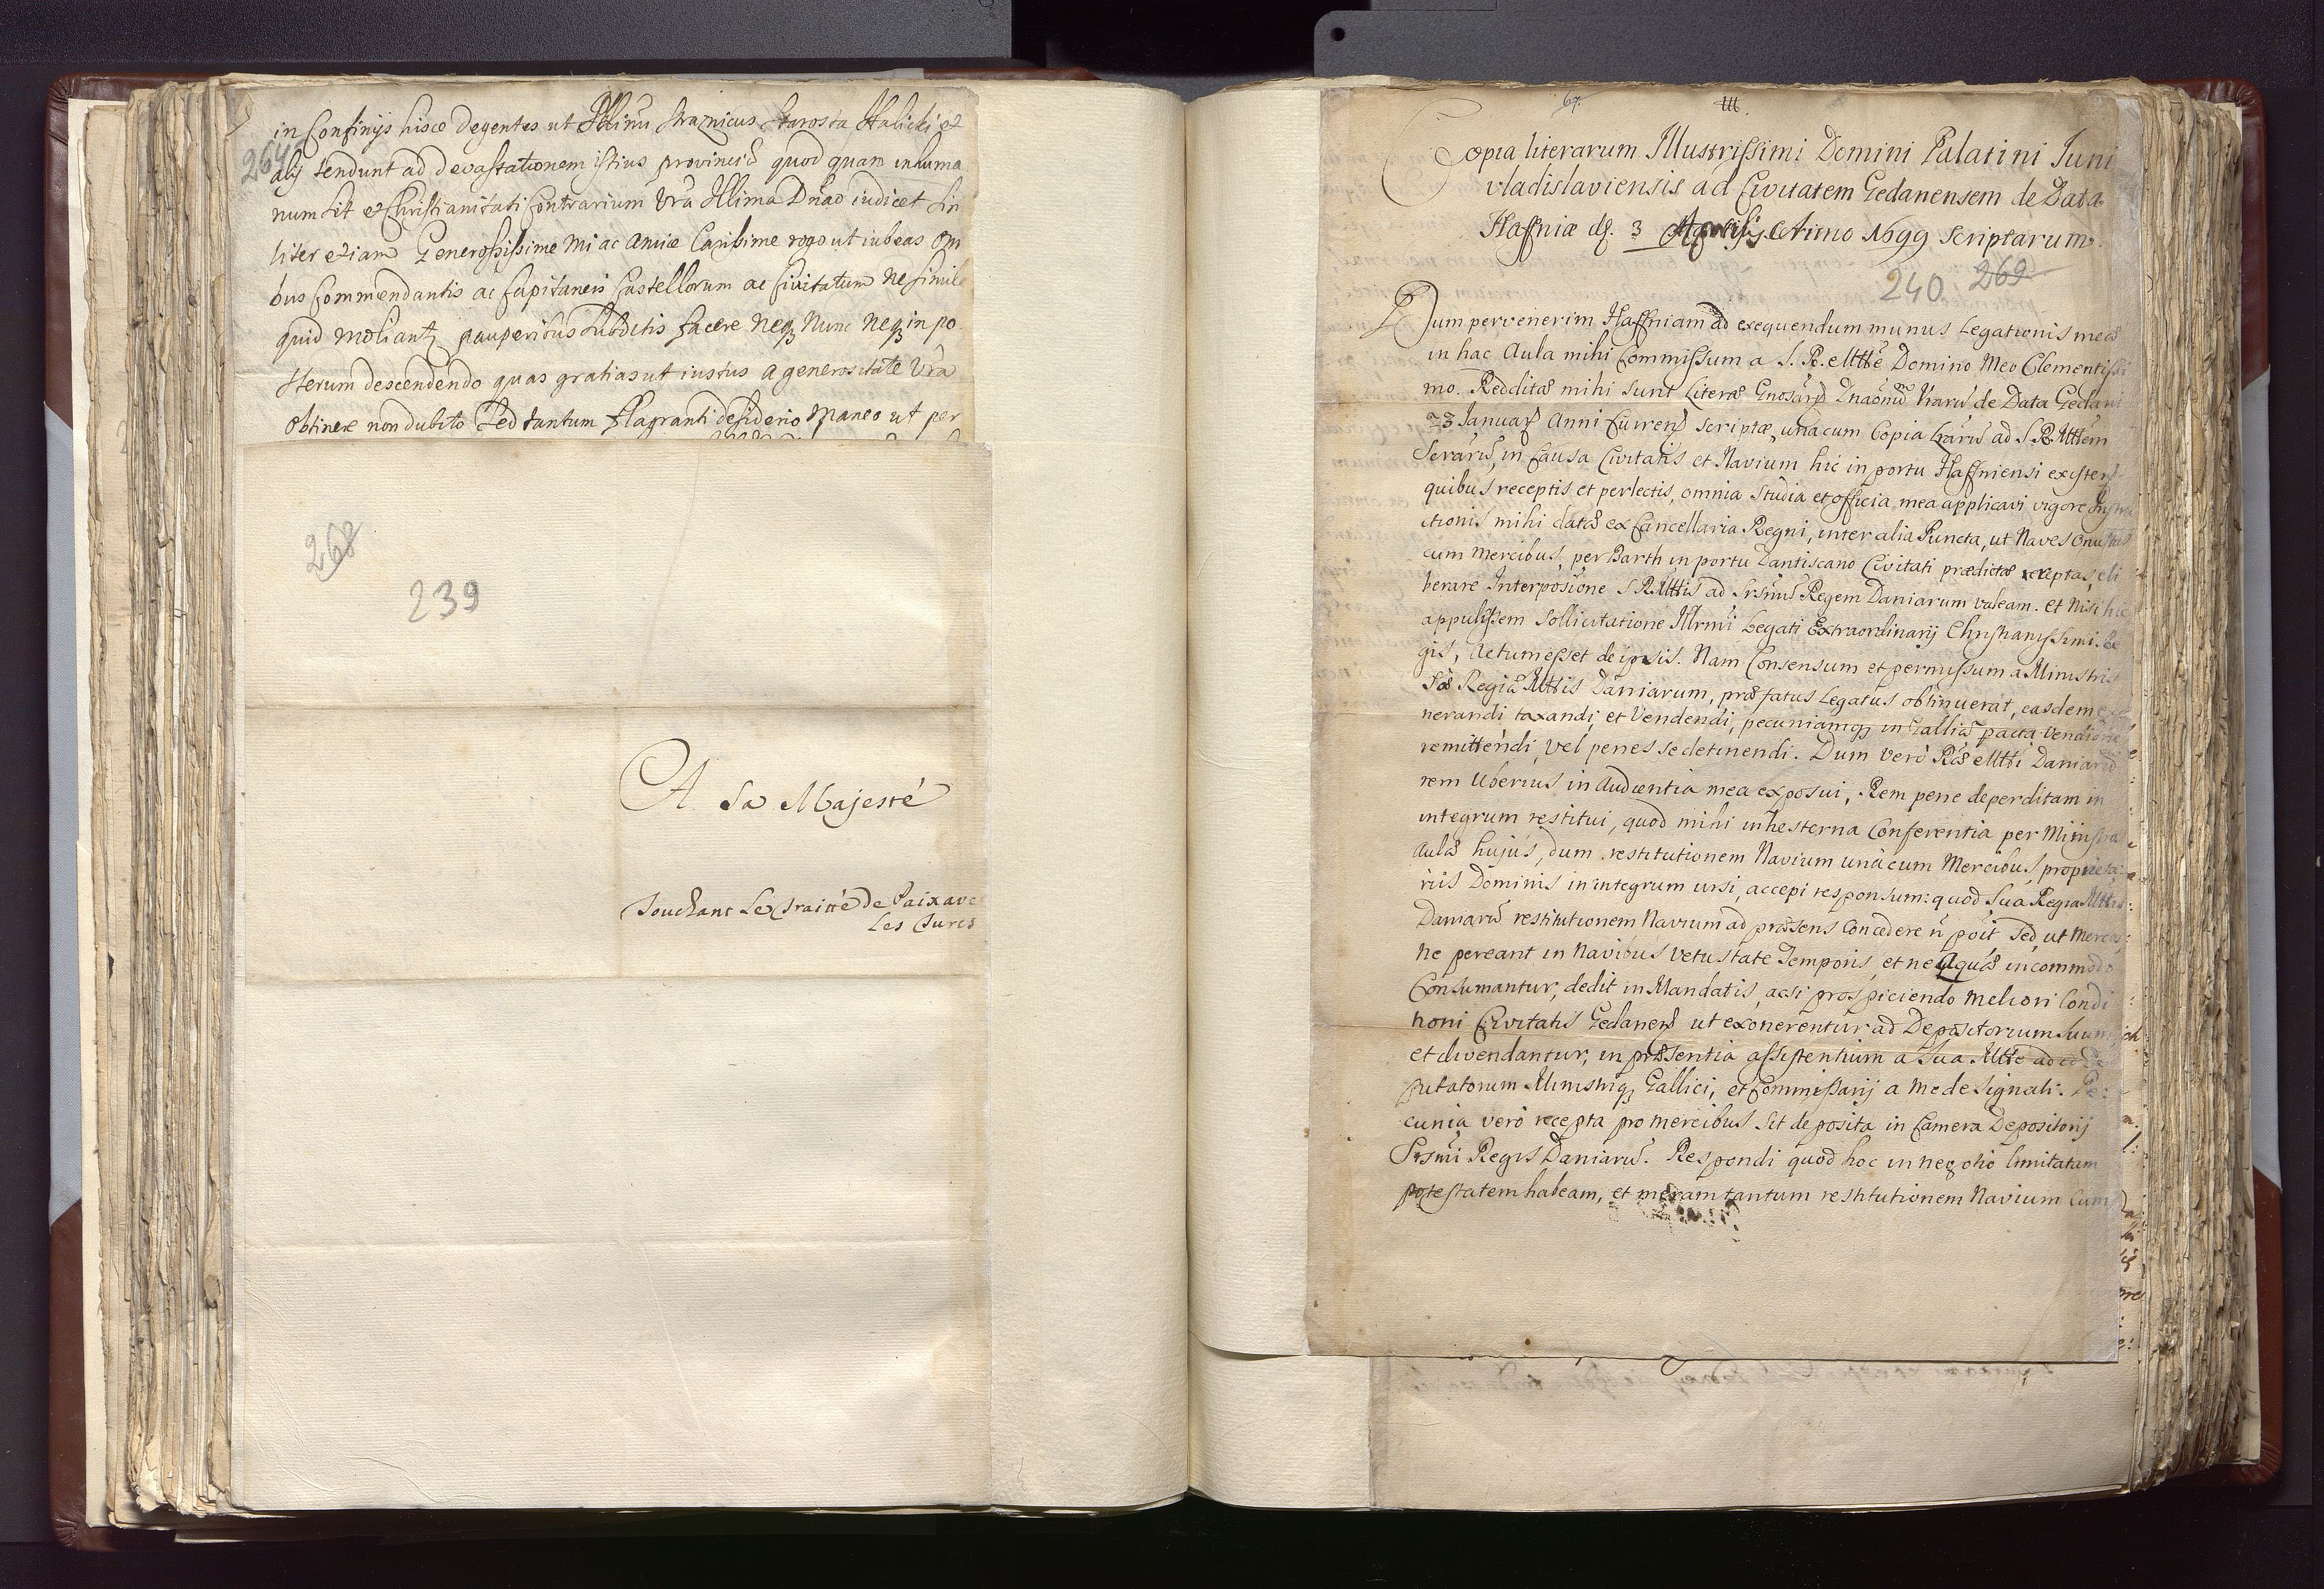 in Confinijs hisce degentes ut Illmu Straznicus Starosta Halicki et
264
alij tendunt ad devastationem istius provinciæ quod quam inhuma
num sit et Christianitati Contrarium Vra Illima Dnão iudicet Sin
liter etiam Generosissime Mi ac Amice Carissime rogo ut iubeas Om
bus Commendantis ac Capitaneis Castellorum ac Civitatum ne simile
quid moliantz pauperibus subditis facere Neqz Nunc Neqz in po
sterum descendendo quas gratias ut iustus a generositate Vrã
obtinere non dubito Sed tantum flagranti desiderio Maneo ut per
268
239
A Sa Majesté
Touchant Le Traitté de Paix avec
Les Turcs
67.
111.
Copia literarum Illustrissimi Domini Palatini Juni
vladislaviensis ad Civitatem Gedanensem de Data
Haffniæ d. 3 Aprilis Anno 1699 Scriptarum.
240 269
Dum pervenerim Haffniam ad exequendum munus Legationis meæ
in hac Aula mihi Commissum a S. R. Mtte Domino Meo Clementissi
mo. Redditæ mihi sunt Literæ de Data Gedani
23 Januarij Anni Curren scriptæ, una cum Copia Lrarũ ad S. R. Mttem
in Causa Civitatis et Navium hic in portu Haffniensi existen
quibus receptis et perlectis, omnia Studia et officia mea applicavi vigore Instru
ctionis mihi datæ ex Cancellaria Regni, inter alia Puncta, ut Naves Onustas
cum Mercibus, per Barth in portu Dantiscano Civitati prædictæ ereptas, eli
berare Interposiõne S R Mttis ad Srsmũ Regem Daniarum valeam. Et Nisi hic
appulissem Sollicitatione Illrmi Legati Extraordinarij Christianissimi Re
gis, Actum esset de ipsis. Nam Consensum et permissum a Ministris
Sæ Regiæ Mttis Daniarum, præfatus Legatus obtinuerat, easdem exo
nerandi taxandi, et Vendendi, pecuniamqz in Galliã pacta Venditione
remittendi, vel penes se detinendi. Dum verò Ræ Mtti Daniarũ
rem Uberius in Audientia mea exposui, Rem pene deperditam in
integrum restitui, quod mihi in hesterna Conferentia per Ministros
Aulæ hujus, dum restitutionem Navium unà cum Mercibus, proprieta
riis Dominis in integrum ursi, accepi responsum: quod Sua Regia Mttas
Daniarũ restitutionem Navium ad præsens Concedere ñ poit, Sed, ut Merces,
ne pereant in Navibus vetustate Temporis, et ne Aquæ incommodo
Consumantur, dedit in Mandatis, acsi prospiciendo meliori Condi
tioni Civitatis Gedanens ut exonerentur ad Depositorium suum,
et divendantur, in præsentia assistentium a Sua Mtte ad eo De
putatorum Ministriqz Gallici, et Commissarij a me designati. Pe
cunia verò recepta pro mercibus sit deposita in Camera Depositorij
Srsmi Regis Daniarũ. Respondi quod hoc in negotio limitatam
potestatem habeam, et meram tantum restitutionem Navium Cum